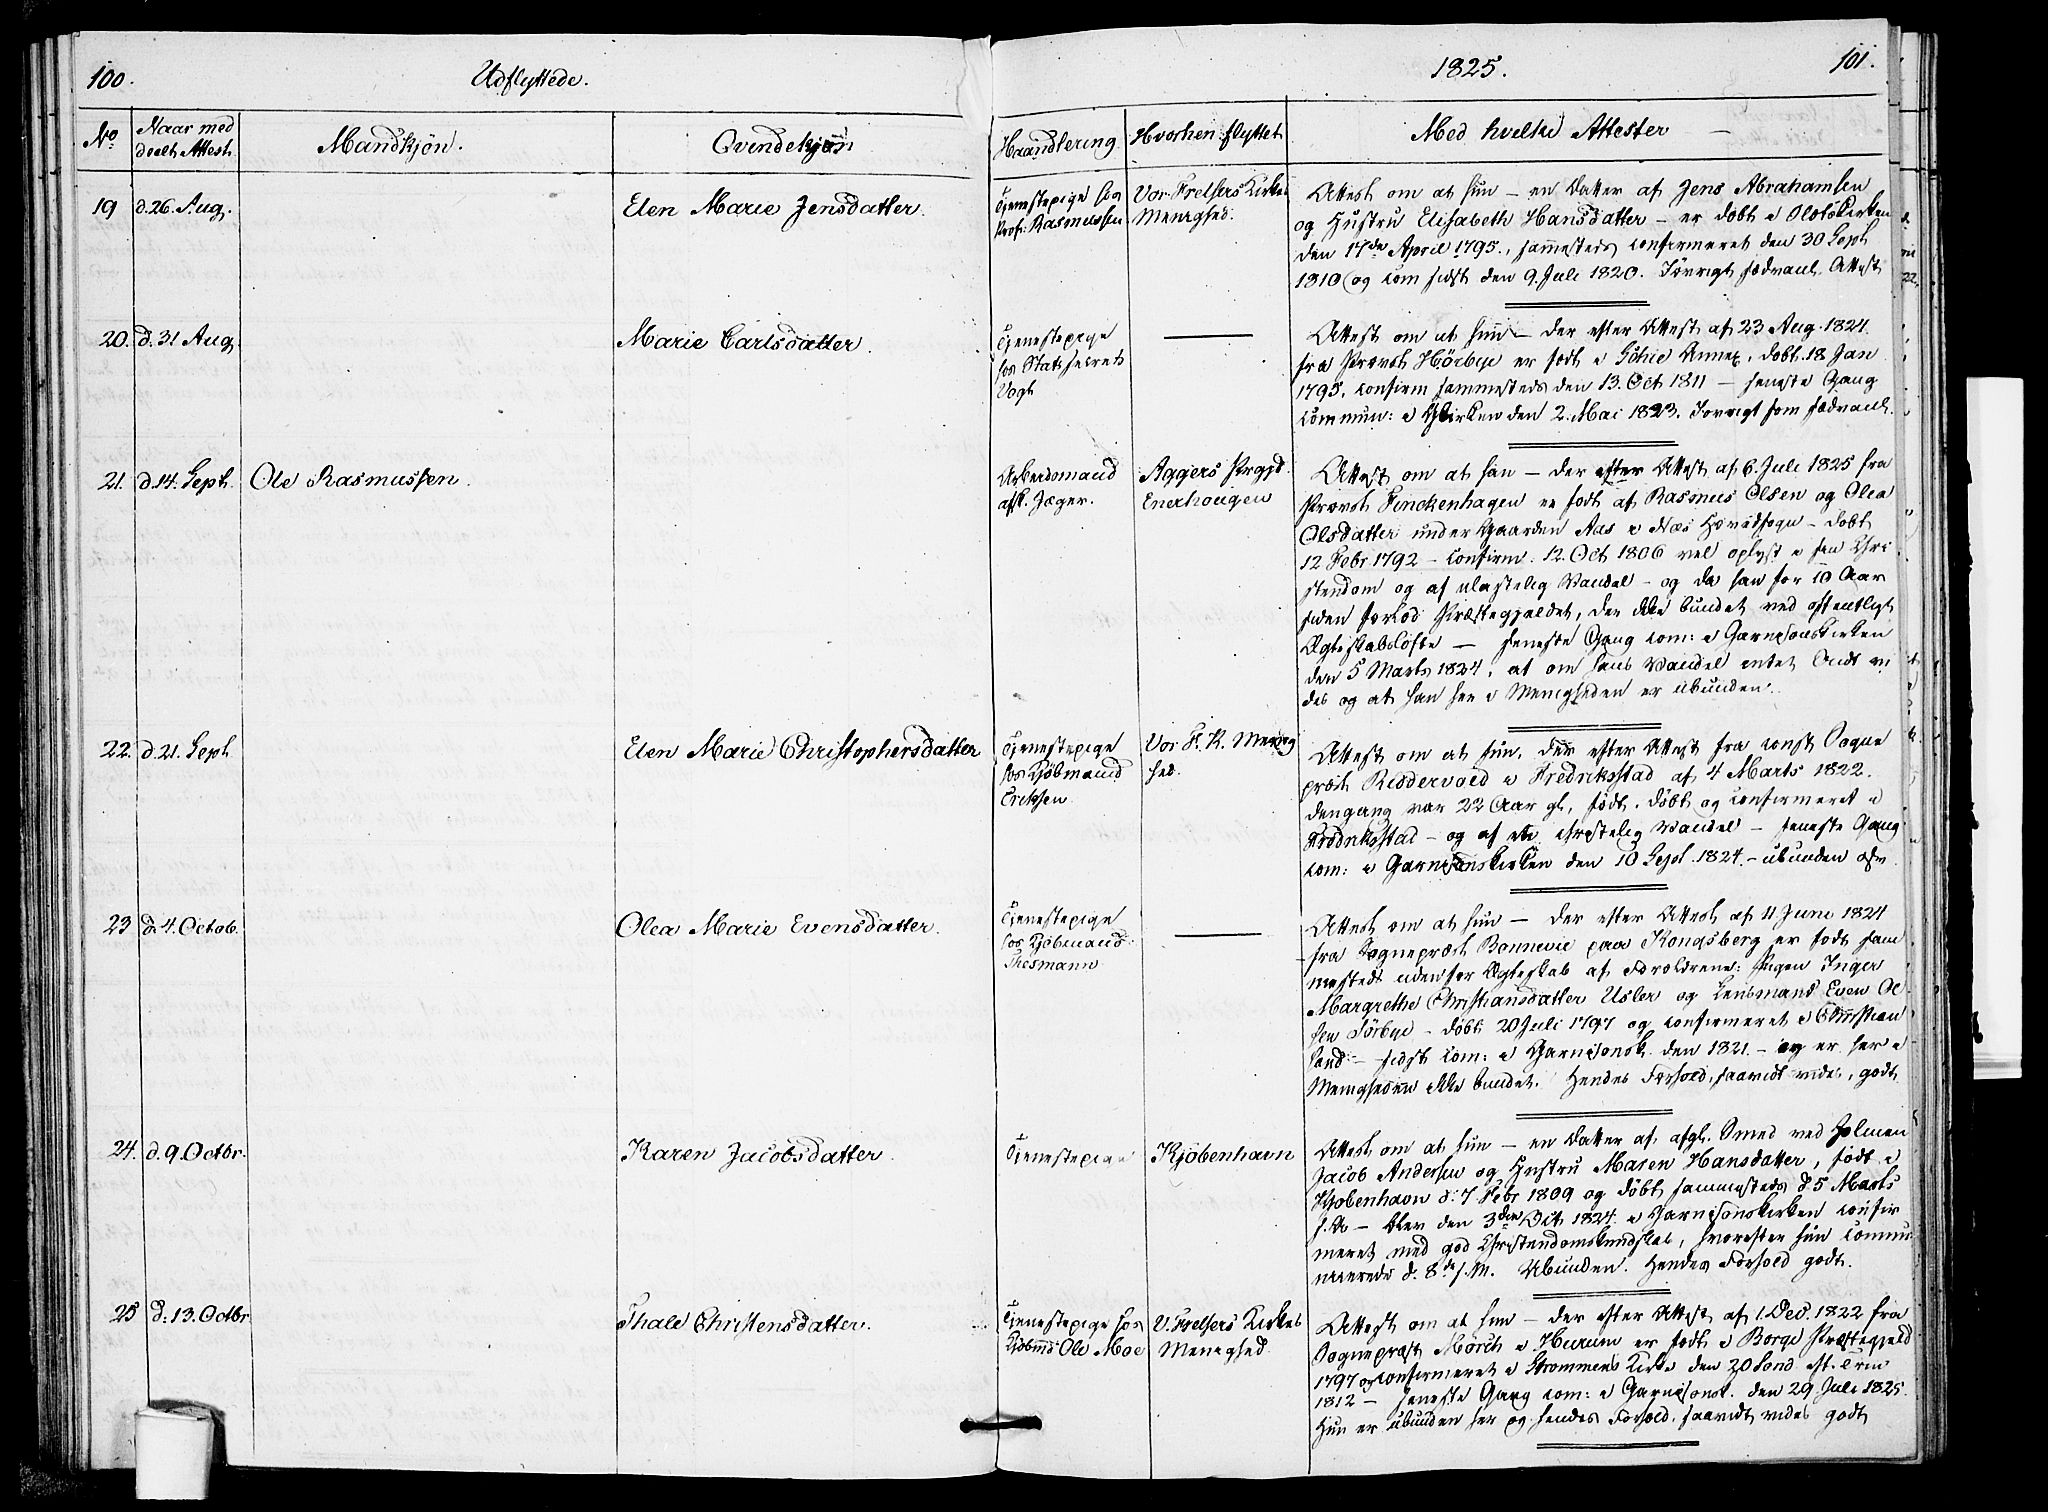 100.
Udflyttede.
1825.
101.
No
Naar med
deelt Attest.
Mandkjön.
Qvindekjön
Haandtering
Hvorhen flyttet
Med hvilke Attester
19
d. 26. Aug.
Elen Marie Jensdatter.
Tjenestepige hos
Prof: Rasmussen.
Vor Frelsers Kirkes
Menighed.
Attest om at hun – en Datter af Jens Abrahamsen
og Hustru Elisabeth Hansdatter – er döbt i
den 17de April 1795, sammesteds confirmeret den 30 Sept
1810 og com sidst den 9. Juli 1820. Iövrigt sædvanl. Attest
20.
d. 31 Aug.
Marie Carlsdatter.
Tjenestepige
hos Statssecret.
Vogt
Attest om at hun – der efter Attest af 23 Aug. 1824
fra Provst Hörbye er födt i Annex, döbt 18 Jan
1795, confirm sammesteds den 13. Oct 1811 – seneste Gang
commun: i Kirken den 2. Mai 1823. Iövrigt som sædvanl.
21.
d. 14. Sept.
Ole Rasmussen.
Arbeidsmand
afsk. Jæger.
Aggers Prgjd.
Enerhougen
Attest om at han – der efter Attest af 6. Juli 1825 fra
Provst Finckenhagen er födt af Rasmus Olsen og Olea
Olsdatter under Gaarden Aas i Næs Hovedsogn – döbt
12 Febr 1792 – confirm. 12. Oct 1806 vel oplyst i sin Chri
stendom og af ulastelig Vandel – og da han for 10 Aar
siden forlod Præstegjældet, der ikke bundet ved offentligt
Ægteskabslöfte – seneste Gang com: i Garnisonskirken
den 5 Marts 1824, at om hans Vandel intet Ondt vi
des og at han her i Menigheden er ubunden.
22.
d. 21. Sept
Elen Marie Christophersdatter
Tjenestepige
hos Kjöbmand
Eriksen
Vor F. K. Menig
hed.
Attest om at hun, der efter Attest fra const Sogne
præst Riddervold i Fredriksstad af 4 Marts 1822.
dengang var 22 Aar gl., födt, döbt og confirmeret i
Fredriksstad – og af christelig Vandel – seneste Gang
com: i Garnisonskirken den 10 Sept. 1824. – ubunden osv.
23
d. 4. Octob.
Olea Marie Evensdatter.
Tjenestepige
hos Kjöbmand
Thesmann
Attest om at hun – der efter Attest af 11 Juni 1824
fra Sognepræst Bonnevie paa Kongsberg er födt sam
mesteds udenfor Ægteskab af Forældrene: Pigen Inger
Margrethe Christiansdatter Usler og Lensmand Even Ol
sen – döbt 20 Juli 1797 og confirmeret i Christian
sand – sidst com: i Garnisonsk. den 1821. – og er her i
Menigheden ikke bundet. Hendes Forhold, saavidt vides, godt
24.
d. 9. Octbr.
Karen Jacobsdatter.
Tjenestepige
Kjöbenhavn
Attest om at hun – en Datter af afgl. Smed ved Holmen
Jacob Andersen og Hustru Maren Hansdatter, födt i
Kjöbenhavn d: 7 Febr 1809 og döbt sammesteds d. 5 Marts
s. A – blev den 3die Oct 1824. i Garnisonskirken confir
meret med god Christendomskundskab, hvorefter hun commu
nicerede d. 8de s. M. Ubunden. Hendes Forhold godt.
25
d: 13. Octbr
Thale Christensdatter.
Tjenestepige hos
Kjöbmd Ole Moe
V. Frelsers Kirkes
Menighed.
Attest om at hun – der efter Attest af 1. Dec. 1822 fra
Sognepræst Mörch i Hurum er födt i Borge Præstegjeld
1797 og confirmeret i Strömmens Kirke den 20 Sönd. eft. Trin
1812 – seneste Gang com: i Garnisonsk. den 29 Juli 1825.
Hun er ubunden her og hendes Forhold, saavidt vides godt